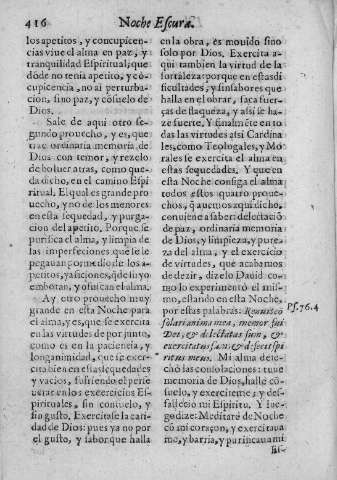 416 Noche Escura.
los apetitos, y concupicen-
cias viue el alma en paz, y
tranquilidad Espiritual; que
dõde no tenia apetito, y cõ-
cupicencia, no ai perturba-
cion, sino paz, y cõsuelo de
Dios.
Sale de aqui otro se-
gundo prouecho, y es, que
trae ordinaria memoria de
Dios con temor, y rezelo
de boluer atras, como que-
da dicho, en el camino Espi-
ritual. El qual es grande pro-
uecho, y no de los menores
en esta sequedad, y purga-
cion del apetito. Porque se
purifica el alma, y limpia de
las imperfeciones que le le
pegauan por medio de los a-
petitos, y aficiones, q̃ de suyo
embotan, y ofuscan el alma.
Ay otro prouecho muy
grande en esta Noche para
el alma, y es, que se exercita
en las virtudes de por junto,
como es en la paciencia, y
longanimidad, que se exer-
cita bien en estas sequedades
y vacios, sufriendo el perse-
uerar en los exercicios Es-
pirituales, sin consuelo, y
sin gusto. Exercitase la cari-
dad de Dios: pues ya no por
el gusto, y sabor que halla
en la obra, es mouido sino
solo por Dios. Exercita a-
qui tambien la virtud de la
fortaleza: porque en estas di-
ficultades, y sinsabores que
halla en el obrar, saca fuer-
ças de flaqueza, y assi se ha-
ze fuerte. Y finalmẽte en to-
das las virtudes assi Cardina
les, como Teologales, y Mo
rales se exercita el alma en
estas sequedades. Y que en
esta Noche consiga el alma
todos estos quatro proue-
chos, q̃ auemos aqui dicho,
conuiene a saber: delectaciõ
de paz, ordinaria memoria
de Dios, y limpieza, y pure-
za del alma, y el exercicio
de virtudes, que acabamos
de dezir, dizelo Dauid co-
mo lo experimentò el mis-
mo, estando en esta Noche,
por estas palabras: Renuit cõ
solari anima mea, memor fui
Dei, & delectatus sum, &
exercitatus sum, & defecit spi
ritus meus. Mi alma dese-
chò las consolaciones: tuue
memoria de Dios, hallè cõ-
suelo, y exerciteme, y des-
falleciò mi Espiritu. Y lue-
go dize: Meditarè de Noche
cõ mi coraçon, y exercitaua
me, y barria, y purificaua mi
Ps. 76. 4